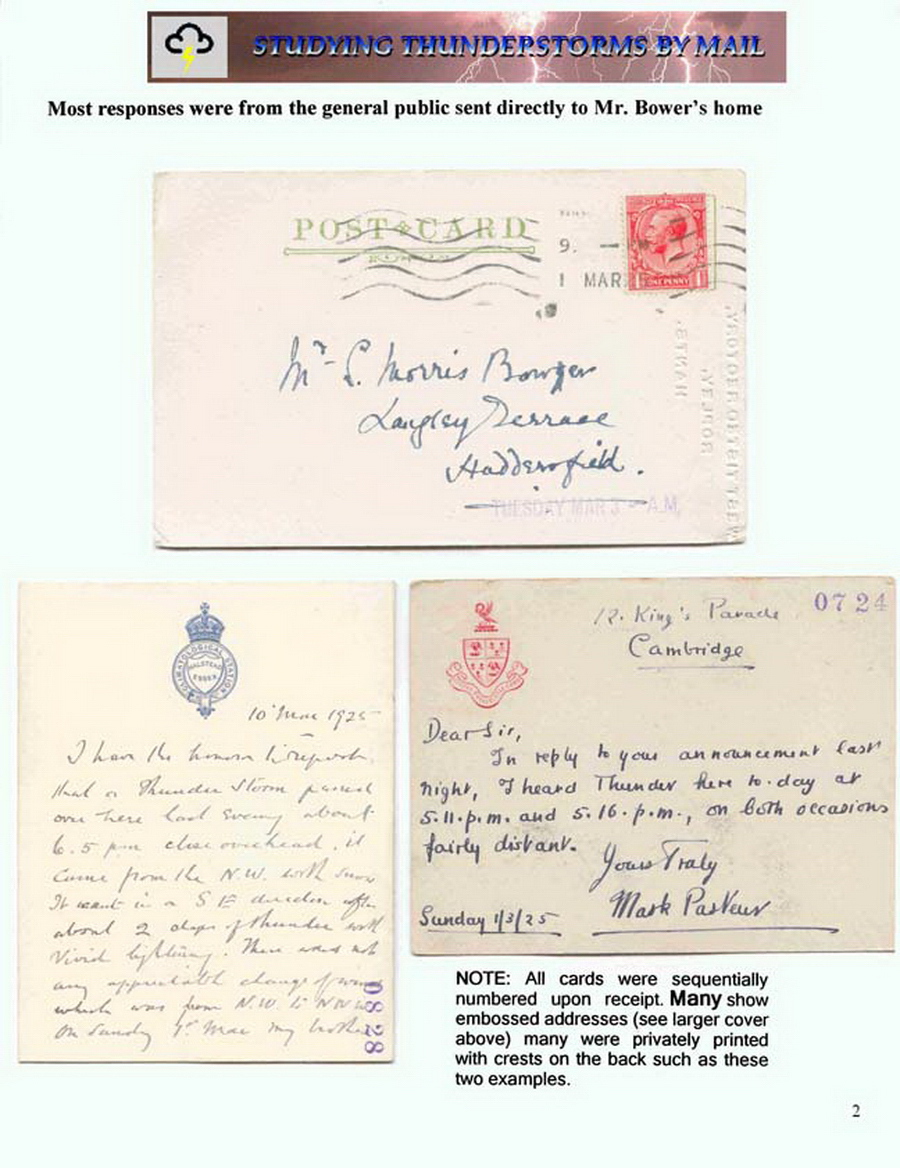 STUDYING THUNDERSTORMS BY MAIL
Most responses were from the general public sent directly to Mr. Bower's home
POST CARD
9.
1 MAR
ONE PENNY
Mr S. Morris Bower
Langley Terrace
Huddersfield.
TUESDAY MAR 3 - A.M.
CLIMATOLOGICAL STATION
HALSTEAD
ESSEX
10 Mar 1925
I have the honour to report
that a Thunder Storm passed
over here last evening about
6.5 pm close overhead, it
came from the N.W. with snow
It went in a S E direction after
about 2 claps of thunder with
Vivid lightning. There was not
any appreciable change of wind
which was from N.W. to NNW
On Sunday 1st Mar my brother
0828
0724
12. King's Parade
Cambridge
Dear Sir,
In reply to your announcement last
night, I heard Thunder here to-day at
5.11.p.m. and 5.16.p.m., on both occasions
fairly distant.
Yours Truly
Mark
Sunday 1/3/25
NOTE: All cards were sequentially
numbered upon receipt. Many show
embossed addresses (see larger cover
above) many were privately printed
with crests on the back such as these
two examples.
2